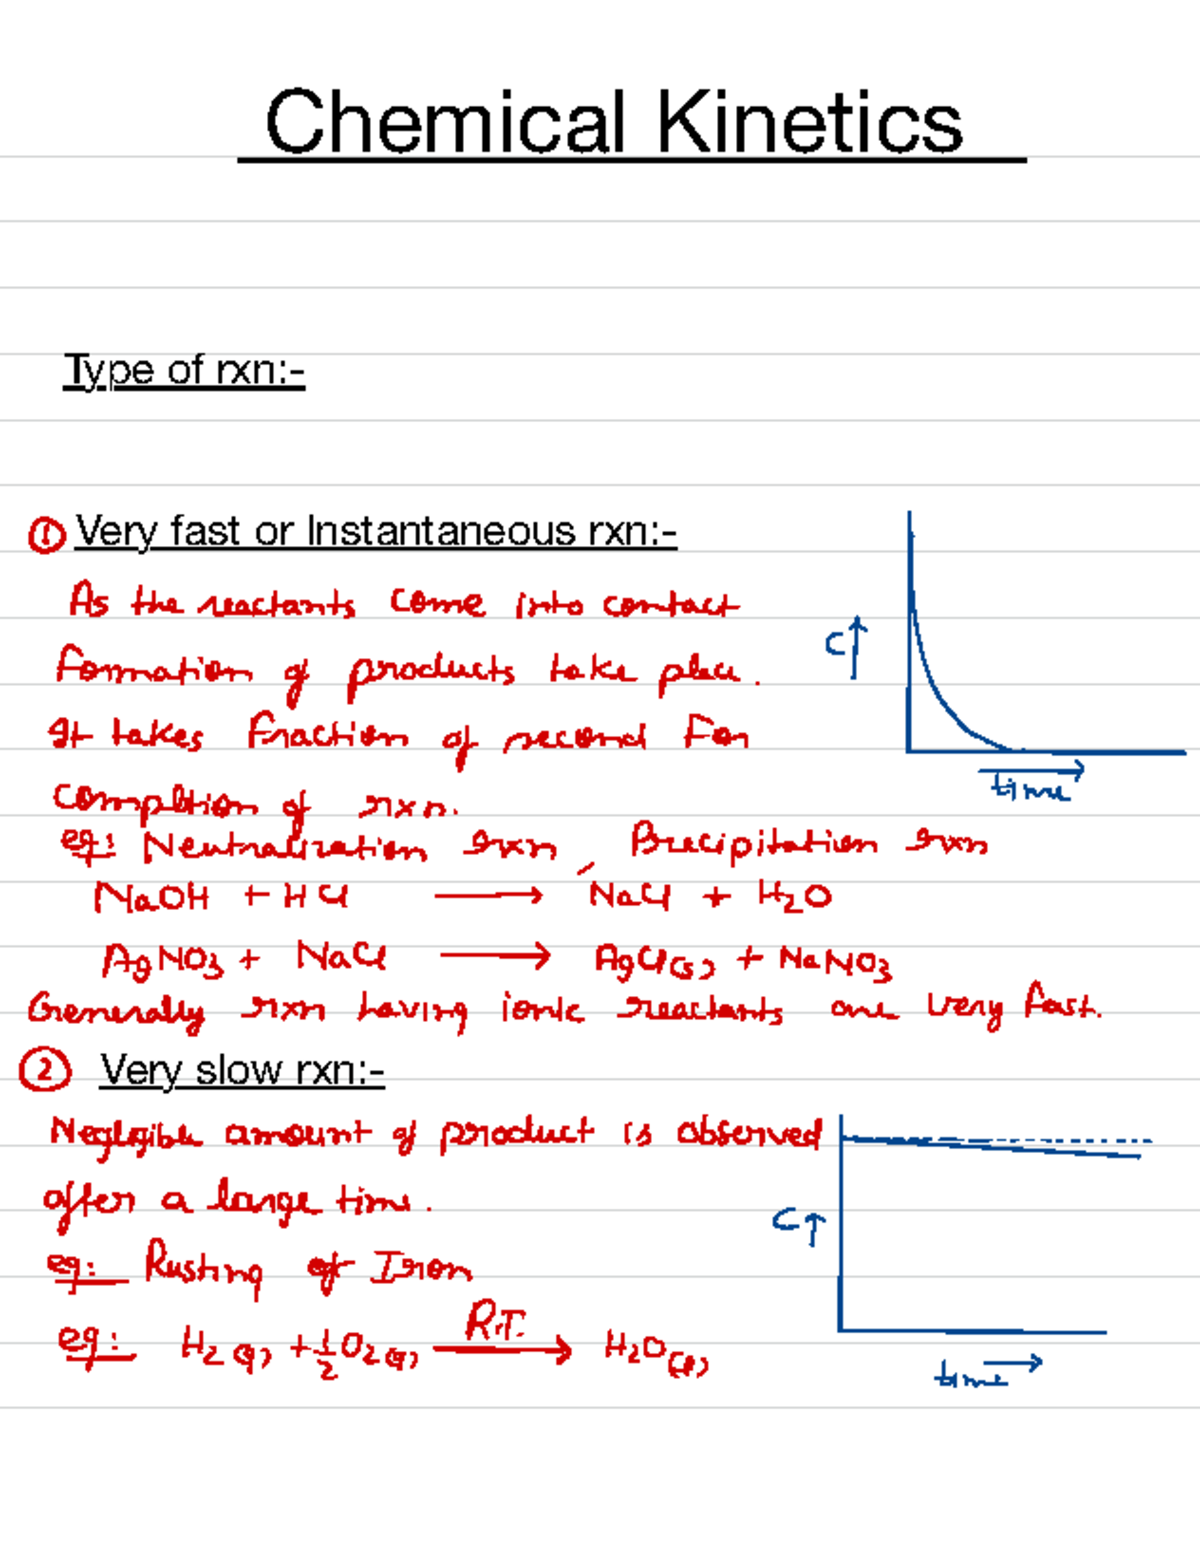 Chemical Kinetics
Type of rxn:-
① Very fast or Instantaneous rxn:-
As the reactants come into contact
formation of products take place.
It takes fraction of second for
completion of rxn.
C↑
time →
eg: Neutralization rxn, Precipitation rxn
NaOH + HCl ⟶ NaCl + H₂O
AgNO₃ + NaCl ⟶ AgCl(s) + NaNO₃
Generally rxn having ionic reactants are very fast.
② Very slow rxn:-
Neglgible amount of product is observed
after a large time.
eg: Rusting of Iron
eg: H₂(g) + ½O₂(g) ⟶ R.T. H₂O(l)
C↑
time →